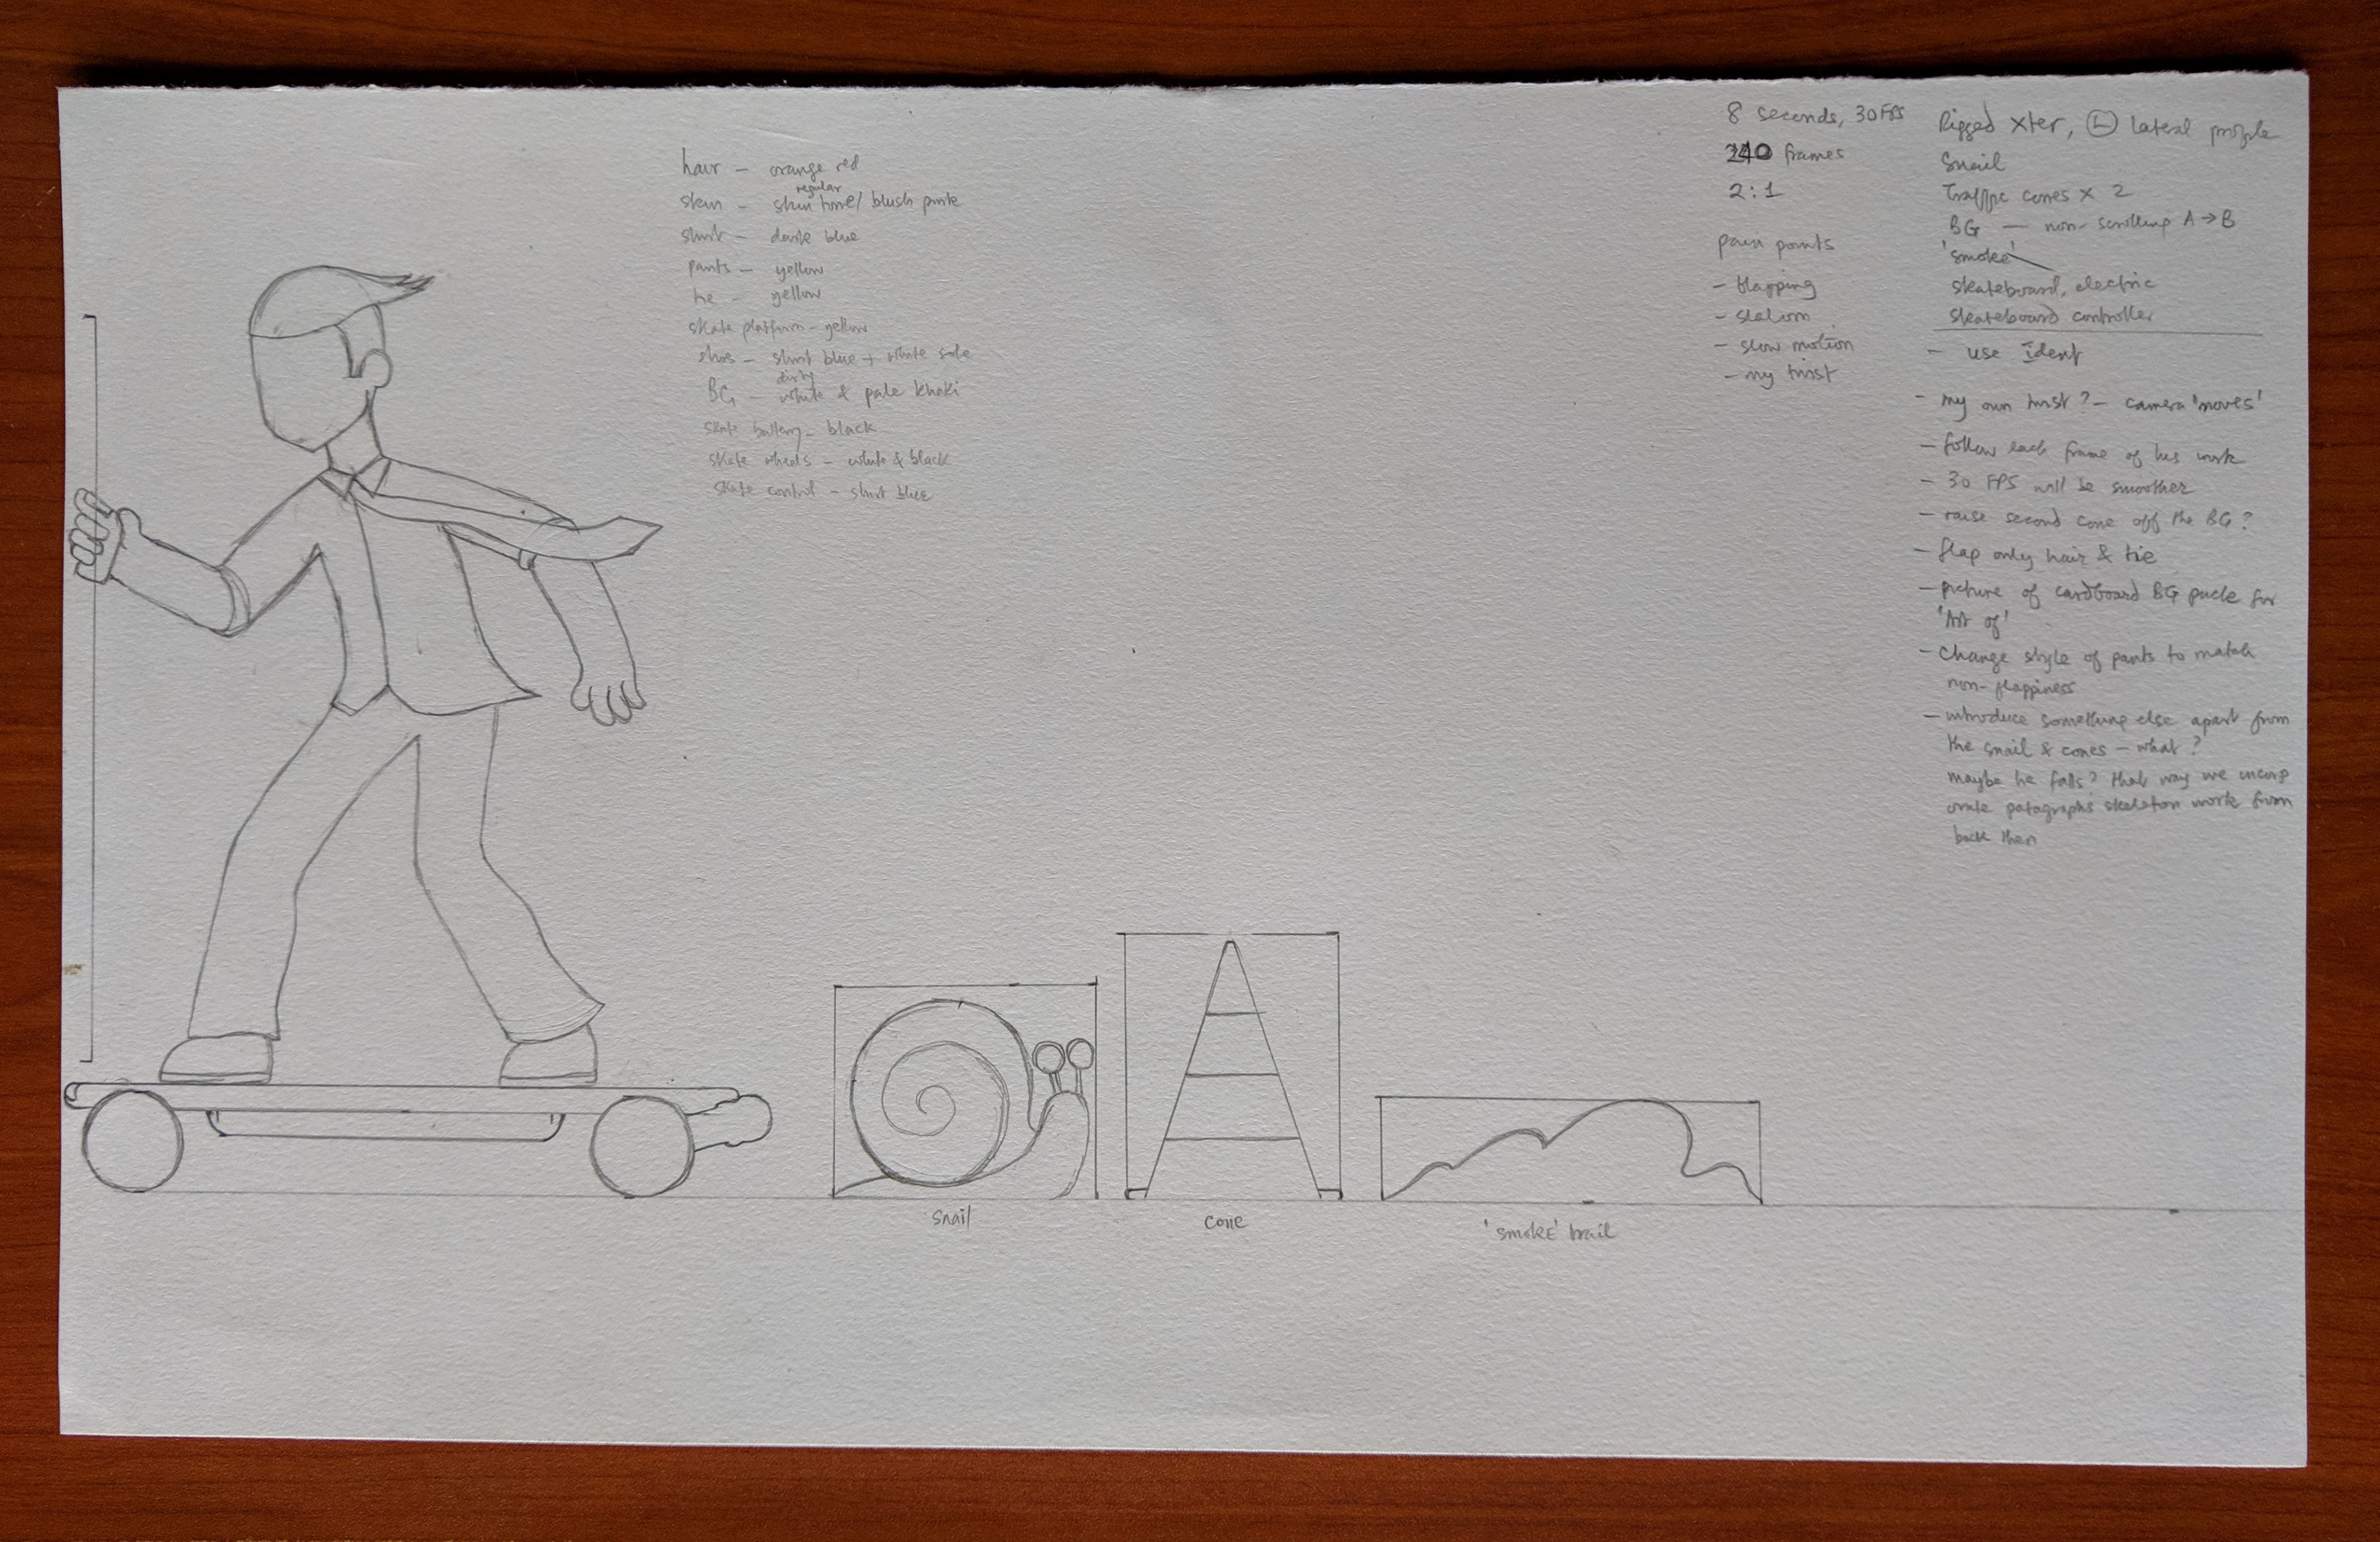 hair – orange red
regular
skin – skin tone/ blush pink
shirt – dark blue
pants – yellow
tie – yellow
skate platform – yellow
shoes – shirt blue + white sole
dirty
BG – white & pale khaki
skate battery – black
skate wheels – white & black
skate control – shirt blue
8 seconds, 30FPS
240 frames
2:1
pain points
– flapping
– slalom
– slow motion
– my twist
Rigged xter, L lateral profile
Snail
Traffic cones x 2
BG — non-scrolling A→B
'smoke'
skateboard, electric
skateboard controller
– use Ident
– my own twist? – camera 'moves'
– follow each frame of his work
– 30 FPS will be smoother
– raise second cone off the BG?
– flap only hair & tie
– picture of cardboard BG puck for
'Art of'
– Change style of pants to match
non-flappiness
– introduce something else apart from
the snail & cones – what?
maybe he falls? that way we incorp
orate patagraphs skeleton work from
back then
snail
cone
'smoke' trail